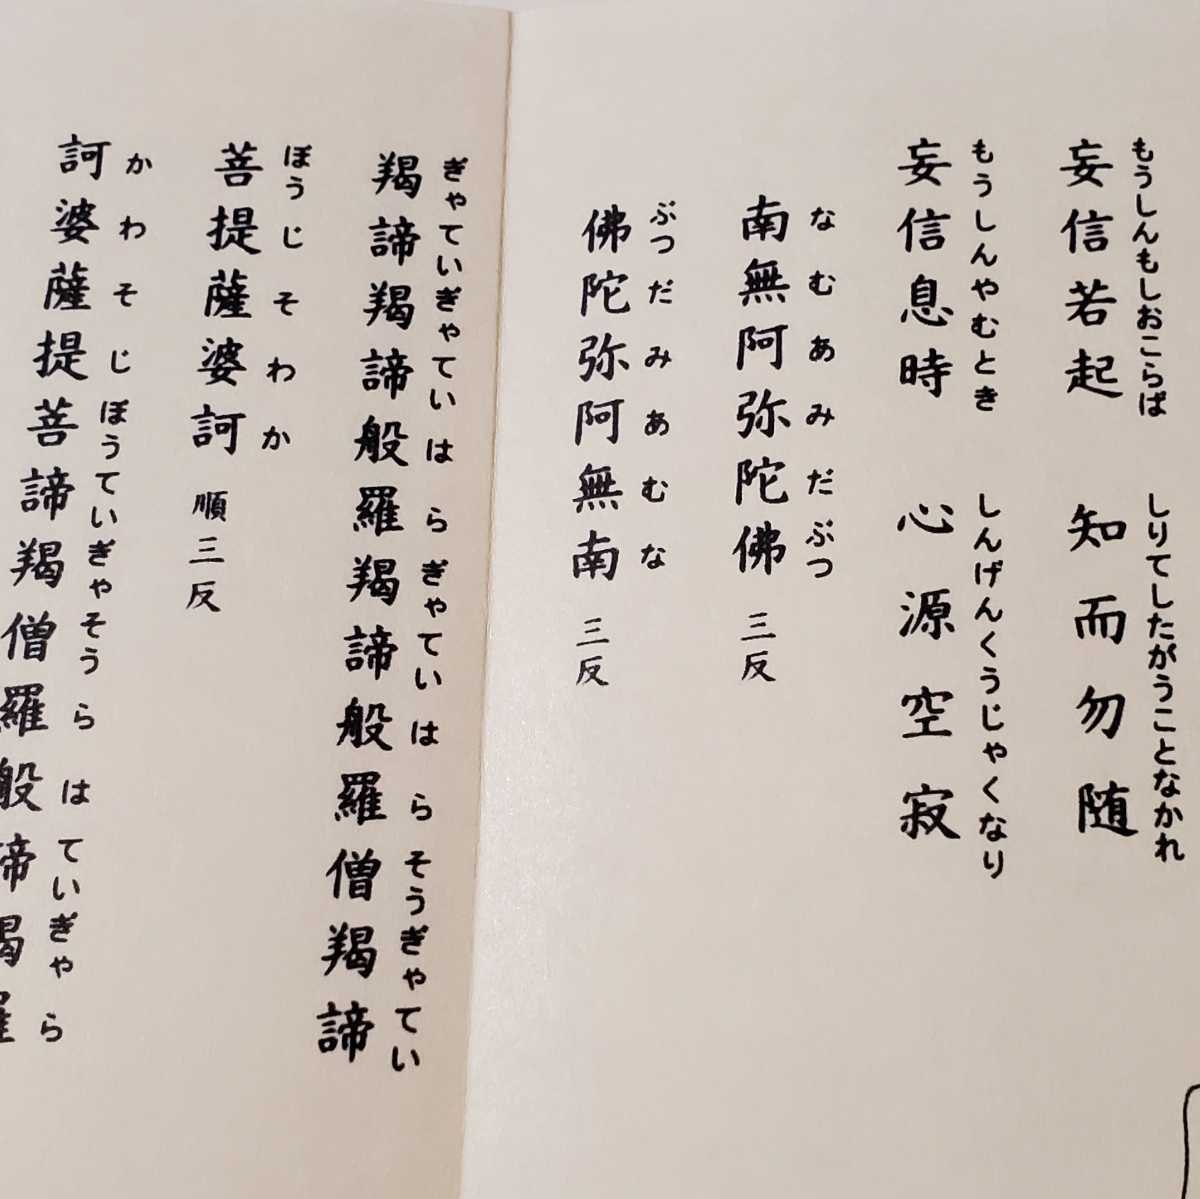 妄信若起　知而勿随
もうしんもしおこらば　しりてしたがうことなかれ
妄信息時　心源空寂
もうしんやむとき　しんげんくうじゃくなり
南無阿弥陀佛 三反
なむあみだぶつ
佛陀弥阿無南 三反
ぶつだみあむな
羯諦羯諦般羅羯諦般羅僧羯諦
ぎゃていぎゃていはらぎゃていはらそうぎゃてい
菩提薩婆訶 順三反
ぼうじそわか
訶婆薩提菩諦羯僧羅般諦羯羅
かわそじぼうていぎゃそうらはていぎゃら